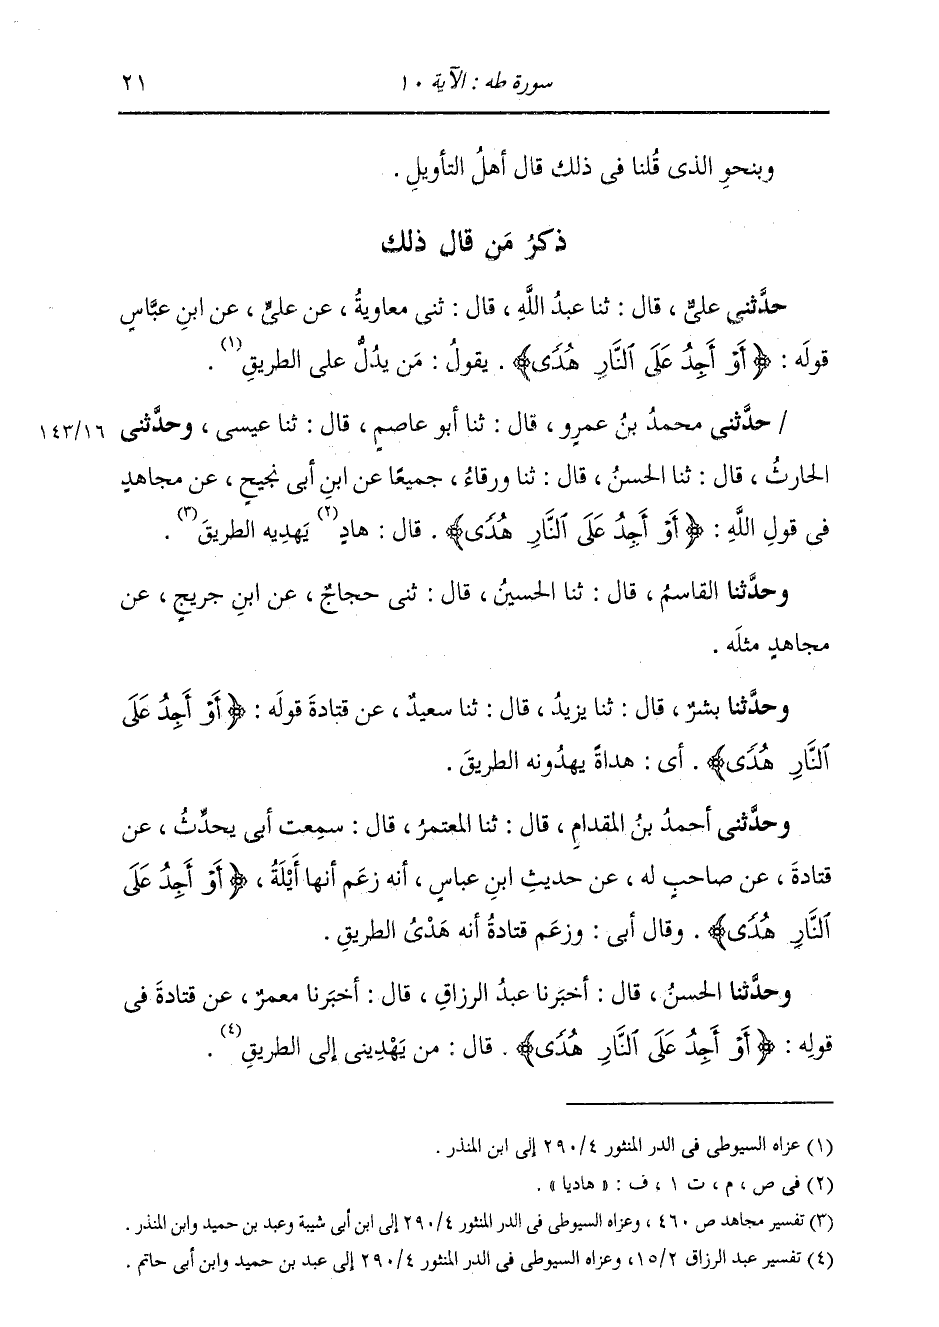 سورة طه : الآية ١٠
٢١
وبنحوِ الذى قُلنا فى ذلك قال أهلُ التأويلِ .
ذكرُ مَن قال ذلك
حدَّثني علىٌّ ، قال : ثنا عبدُ اللَّهِ ، قال : ثنى معاويةُ ، عن علىٍّ ، عن ابنِ عبَّاسٍ
قولَه : ﴿ أَوْ أَجِدُ عَلَى ٱلنَّارِ هُدًى ﴾ . يقولُ : مَن يدُلُّ على الطريقِ (١) .
١٤٣/١٦ / حدَّثني محمدُ بنُ عمرٍو ، قال : ثنا أبو عاصمٍ ، قال : ثنا عيسى ، وحدَّثنى
الحارثُ ، قال : ثنا الحسنُ ، قال : ثنا ورقاءُ ، جميعًا عن ابنِ أبى نجيحٍ ، عن مجاهدٍ
فى قولِ اللَّهِ : ﴿ أَوْ أَجِدُ عَلَى ٱلنَّارِ هُدًى ﴾ . قال : هادٍ (٢) يَهدِيه الطريقَ (٣) .
وحدَّثنا القاسمُ ، قال : ثنا الحسينُ ، قال : ثنى حجاجٌ ، عن ابنِ جريجٍ ، عن
مجاهدٍ مثلَه .
وحدَّثنا بشرٌ ، قال : ثنا يزيدُ ، قال : ثنا سعيدٌ ، عن قتادةَ قولَه : ﴿ أَوْ أَجِدُ عَلَى
ٱلنَّارِ هُدًى ﴾ . أى : هداةً يهدُونه الطريقَ .
وحدَّثنى أحمدُ بنُ المقدامِ ، قال : ثنا المعتمرُ ، قال : سمِعت أبى يحدِّثُ ، عن
قتادةَ ، عن صاحبٍ له ، عن حديثِ ابنِ عباسٍ ، أنه زعَم أنها أَيْلَةُ ، ﴿ أَوْ أَجِدُ عَلَى
ٱلنَّارِ هُدًى ﴾ . وقال أبى : وزعَم قتادةُ أنه هَدْىُ الطريقِ .
وحدَّثنا الحسنُ ، قال : أخبَرنا عبدُ الرزاقِ ، قال : أخبَرنا معمرٌ ، عن قتادةَ فى
قولِه : ﴿ أَوْ أَجِدُ عَلَى ٱلنَّارِ هُدًى ﴾ . قال : من يَهْدِينى إلى الطريقِ (٤) .
(١) عزاه السيوطى فى الدر المنثور ٢٩٠/٤ إلى ابن المنذر .
(٢) فى ص ، م ، ت ١ ، ف : « هاديا » .
(٣) تفسير مجاهد ص ٤٦٠ ، وعزاه السيوطى فى الدر المنثور ٢٩٠/٤ إلى ابن أبى شيبة وعبد بن حميد وابن المنذر .
(٤) تفسير عبد الرزاق ١٥/٢، وعزاه السيوطى فى الدر المنثور ٢٩٠/٤ إلى عبد بن حميد وابن أبى حاتم .